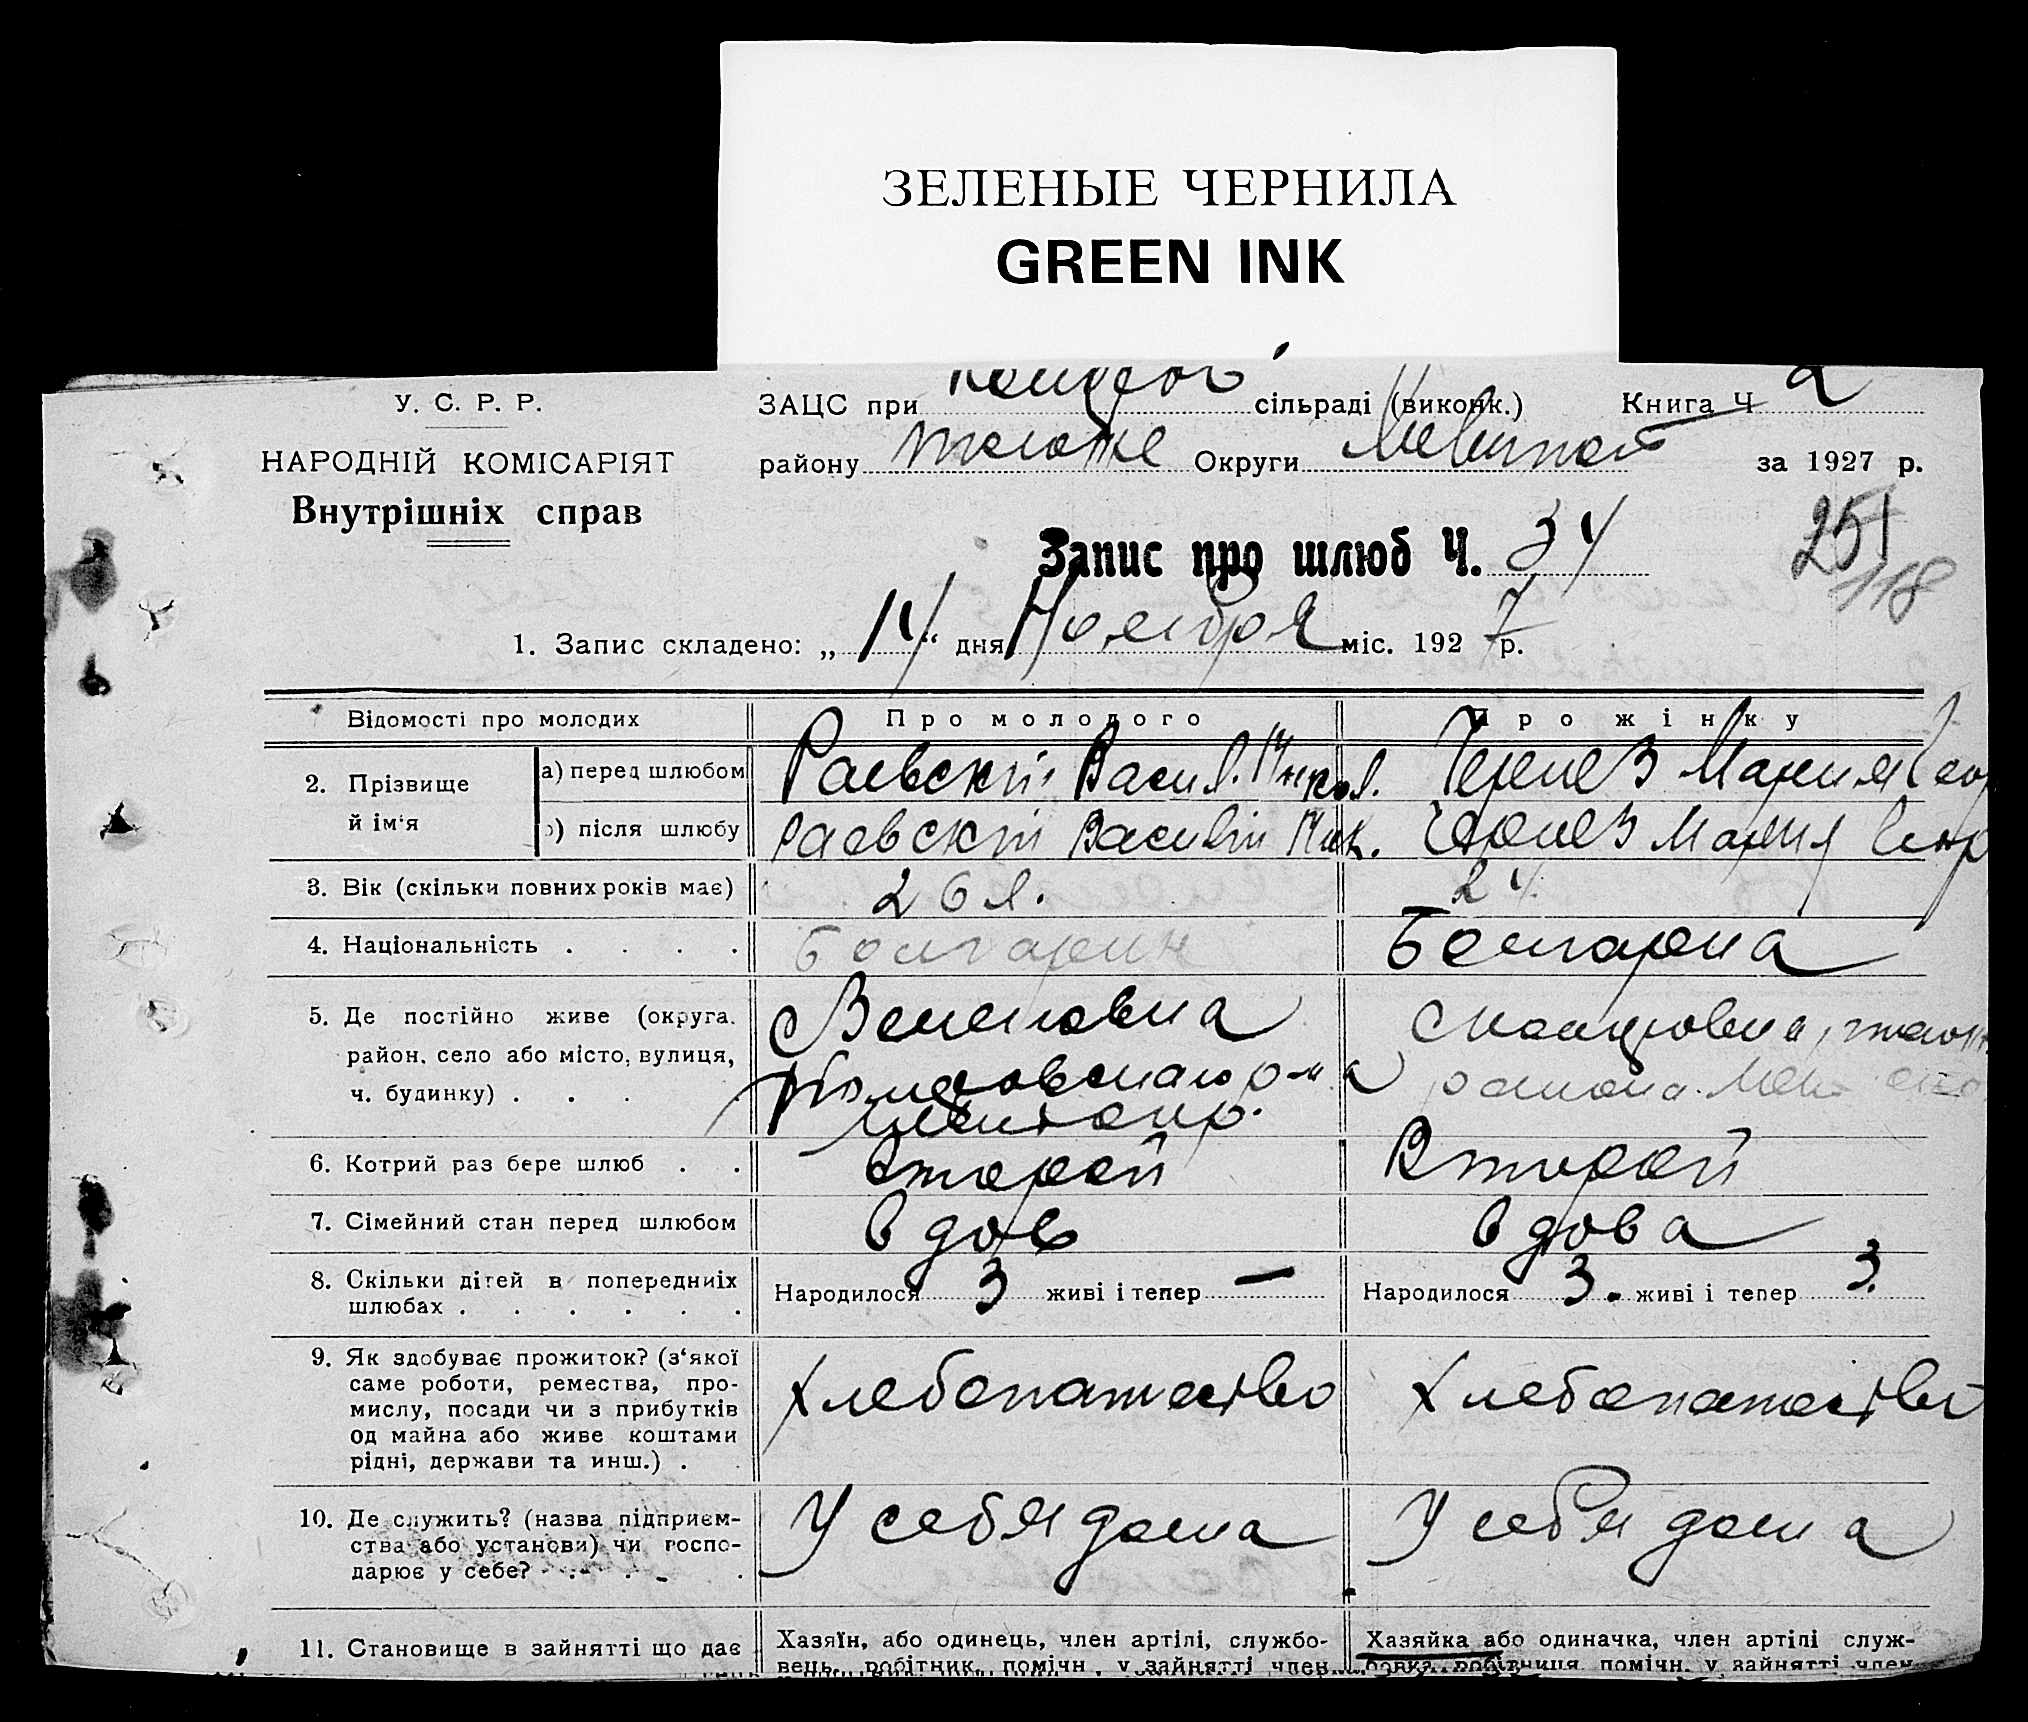 ЗЕЛЕНЫЕ ЧЕРНИЛА
GREEN INK
У. С. Р. Р.
НАРОДНІЙ КОМІСАРІЯТ
Внутрішніх справ
ЗАЦС при сільраді (виконк.) Книга Ч 2
району Округи за 1927 р.
Запис про шлюб Ч. 34
251
118
1. Запис складено: „14“ дня Ноября міс. 1927 р.
Відомості про молодих Про молодого Про жінку
2. Прізвище й ім‘я
а) перед шлюбом Раевский Васил. Никол. Мария Геор
б) після шлюбу Раевский Василий Ник. Мария Геор
3. Вік (скільки повних років має) 26 л. 24
4. Національність . . . . Болгарин Болгарка
5. Де постійно живе (округа,
район, село або місто, вулиця,
ч. будинку) . . .
6. Котрий раз бере шлюб . . второй Второй
7. Сімейний стан перед шлюбом вдов вдова
8. Скільки дітей в попередниіх
шлюбах . . . . . .
Народилося 3 живі і тепер — Народилося 3. живі і тепер 3.
9. Як здобуває прожиток? (з‘якої
саме роботи, ремества, про-
мислу, посади чи з прибутків
од майна або живе коштами
рідні, держави та инш.) .
Хлебопашество Хлебопашество
10. Де служить? (назва підприєм-
ства або установи) чи госпо-
дарює у себе?
У себя дома У себя дома
11. Становище в зайнятті що дає
Хазяїн, або одинець, член артілі, службо-
вець, робітник, помічн. у зайнятті член
Хазяйка або одиначка, член артілі служ-
бовка, робітниця, помічн. у зайнятті член